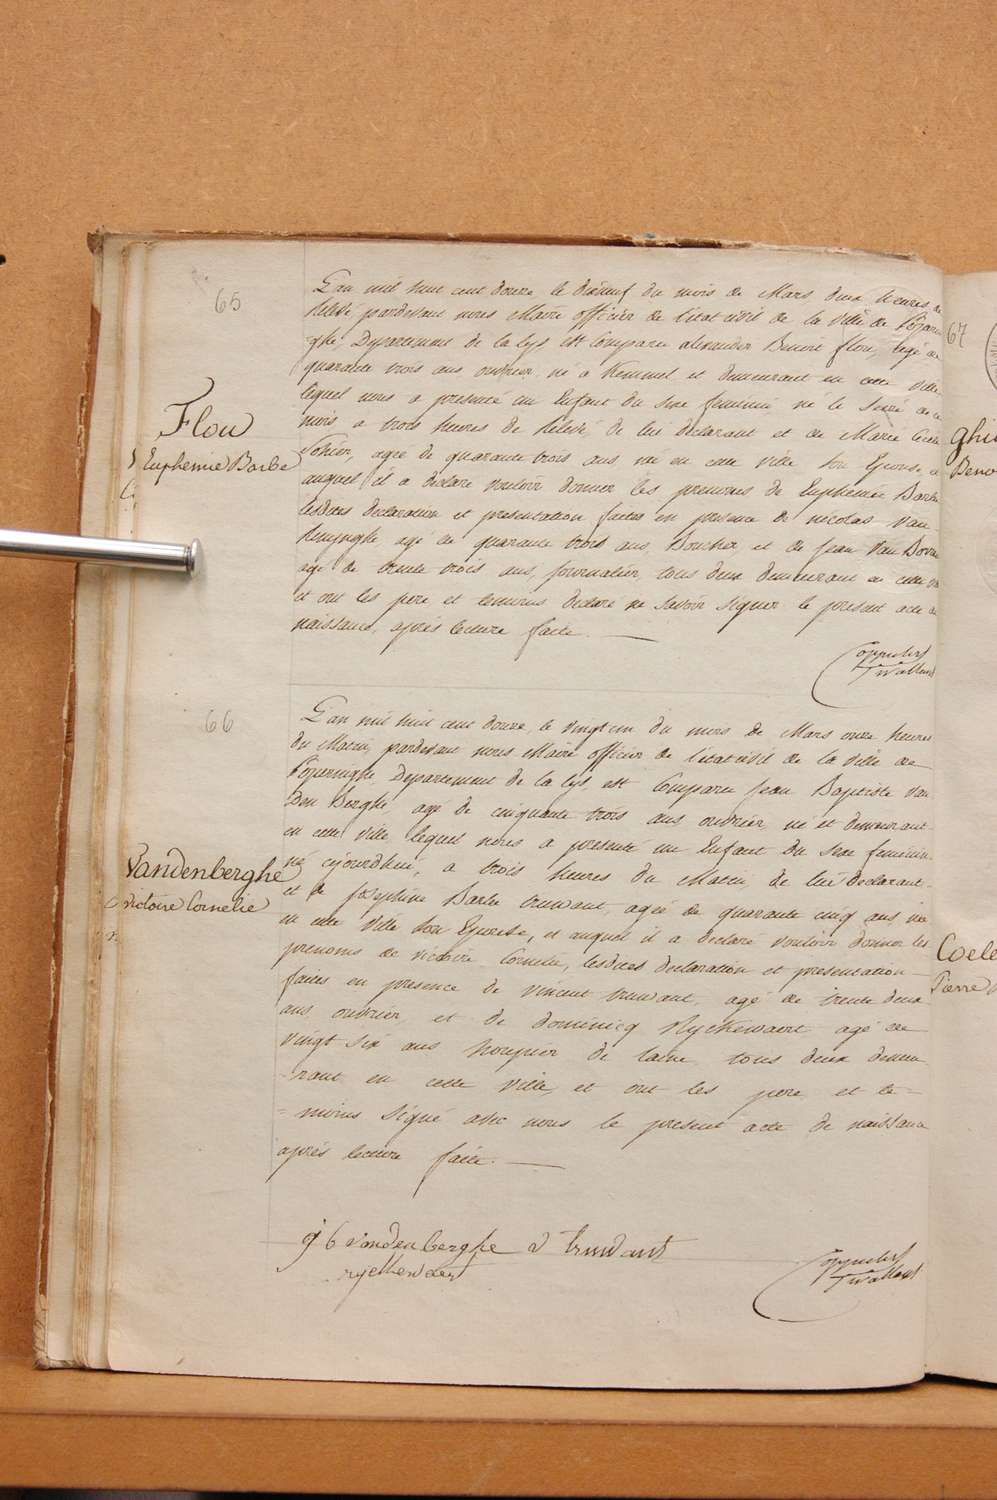 65
Flou
Euphemie Barbe
L'an mil huit cent douze le dixneuf du mois de Mars deux heures de
relevé, pardevant nous Maire officier de l'etat civil de la ville de Poperin
ghe, Departement de la Lys est Comparu alexander Benoit flou, agé de
quarante trois ans ouvrier né a Kemmel et demeurant en cette ville
lequel nous a presenté un Enfant du sexe feminin né le Seize de ce
mois a trois heures de relevé de lui declarant et de Marie Cecile
Sohier, agée de quarante trois ans née en cette ville son Epouse, et
auquel il a declare vouloir donner les prenoms de Euphemie Barbe
lesdites declaration et presentation faites en presence de nicolas Van-
agé de quarante trois ans Boucher, et de jean Van Bovre
agé de trente trois ans, journalier, tous deux demeurant en cette ville
et ont les pere et temoins declaré ne savoir signer le present acte de
naissance, après lecture faite.
66
Vandenberghe
victoire Cornelie
L'an mil huit cent douze, le vingt un du mois de Mars onze heures
du Matin, pardevant nous Maire officier de l'etat civil de la ville de
Poperinghe Departement de la Lys, est Comparu Jean Baptiste Van
Den Berghe agé de cinquante trois ans ouvrier, né et demeurant
en cette ville lequel nous a presenté un Enfant du sexe feminin
né cejourdhui, a trois heures du Matin, de lui declarant
et de Josephine Barbe truwant, agée de quarante cinq ans, née
en cette ville son Epouse, et auquel il a declaré vouloir donner les
prenoms de victoire Cornelie, lesdites declaration et presentation
faites en presence de vincent truwant, agé de trente deux
ans ouvrier, et de dominicq Ryckewaert agé de
vingt six ans de laine tous deux demeu
-rant en cette ville, et ont les pere et te=
=moins Signé avec nous le present acte de naissance
après lecture faite.
j b vandenberghe v truwant
ryckewaert
67
Ghis
Beno
Coele
Pierre